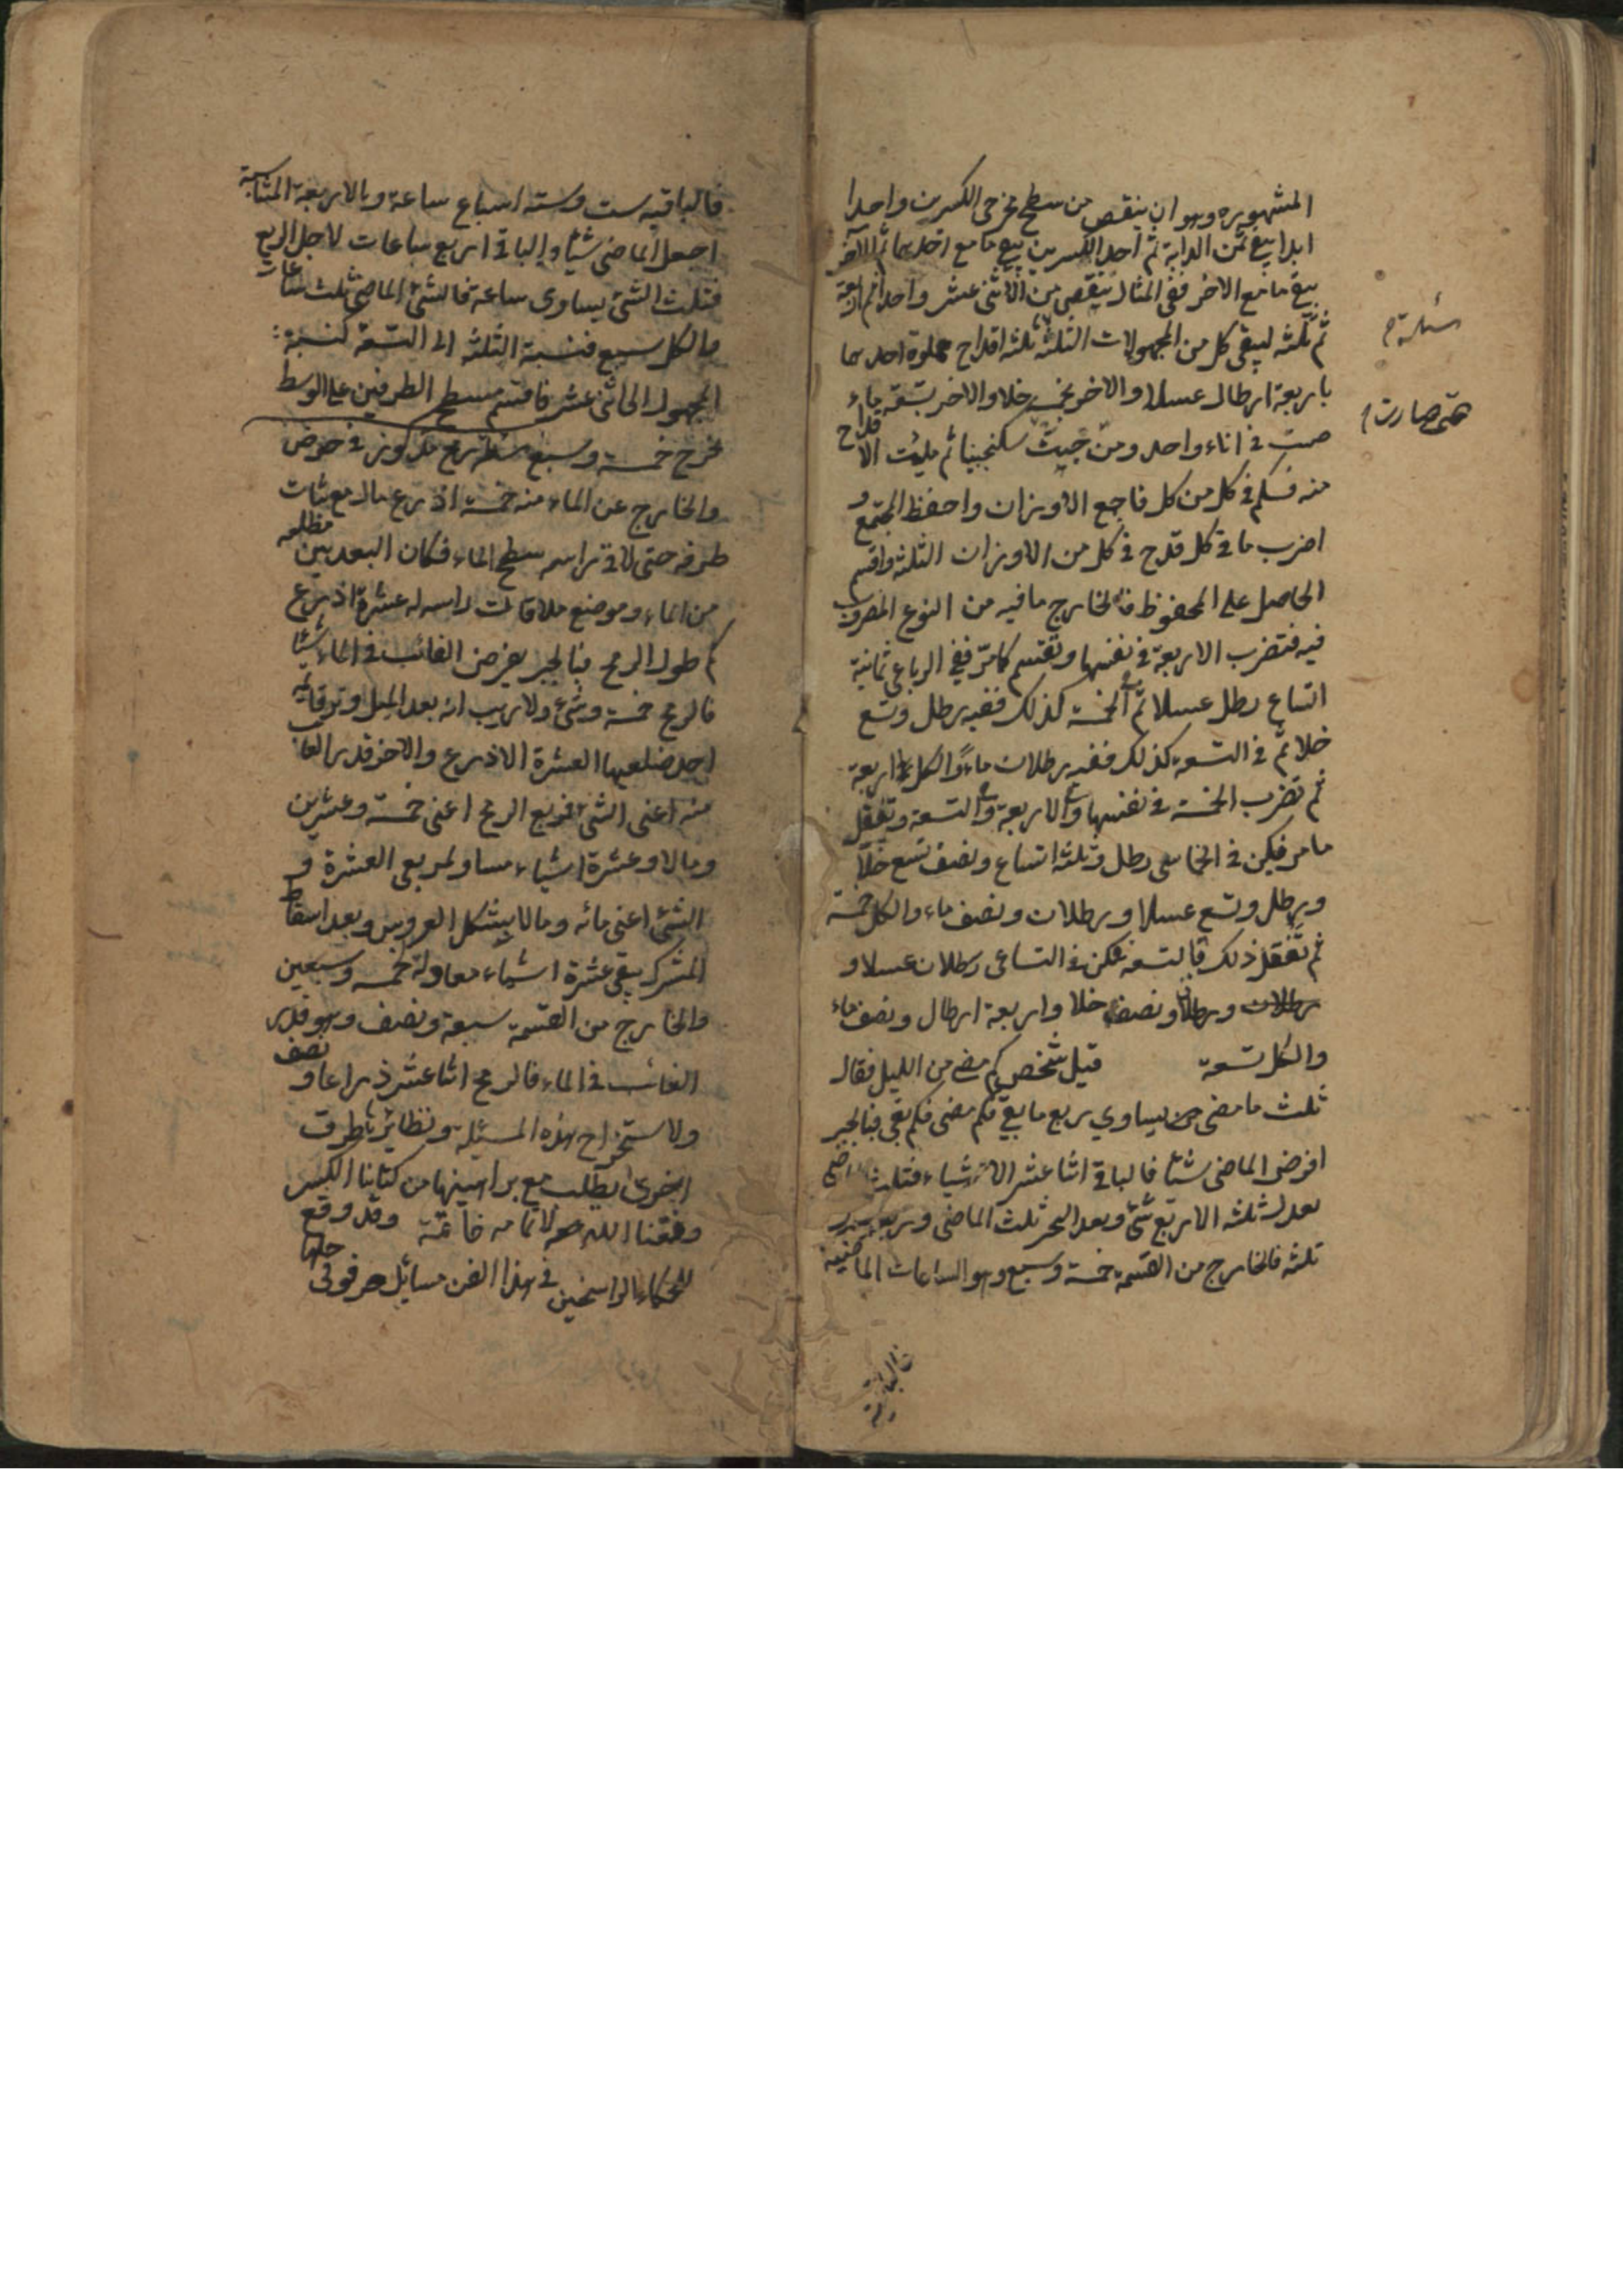 المشهوره وهو ان ينقص من سطح مخرجى الكسرين واحدا
ابدا يبقى ثمن الدابة ثم احد الكسرين يبقى ما مع احدهما ثم الاخر
يبقى ما مع الاخر ففى المثال ينقص من الاثنى عشر واحدا ثم اربعة
ثم ثلثه ليبقى كل من المجهولات الثلثه ثلثه اقداح مملوة احدها
مسئلة
باربعة ارطال عسلا والاخر بخمسة خلا والاخر بتسعة ماء
صبت فى اناء واحد ومزجت سكنجبينا ثم ملئت الاقداح
حتى صارت
منه فكم فى كل من كل فاجمع الاوزان واحفظ المجتمع و
اضرب ما فى كل قدح فى كل من الاوزان الثلثه واقسم
الحاصل على المحفوظ فالخارج ما فيه من النوع المضروب
فيه فتضرب الاربعة فى نفسها وتقسم كما مر ففى الرباعى ثمانية
اتساع رطل عسلا ثم فى الخمسة كذلك ففيه رطل وتسع
خلا ثم فى التسعة كذلك ففيه رطلان ماء والكل اربعة
ثم تضرب الخمسة فى نفسها وفى الاربعة وفى التسعة وتفعل
ما مر فيكن فى الخماسى رطل وثلثة اتساع ونصف تسع خلا
ورطل وتسع عسلا ورطلان ونصف ماء والكل خمسة
ثم تفعل ذلك بالتسعة فيكن فى التساعى رطلان عسلا و
رطلان ورطلان ونصف خلا واربعة ارطال ونصف ماء
والكل تسعة قيل شخص كم مضى من الليل فقال
ثلث ما مضى يساوى ربع ما بقى فكم مضى فكم بقى فبالجبر
افرض الماضى شيئا فالباقى اثنا عشر الا شيئا فثلث الماضى
يعدل ثلثه الا ربع شئ وبعد الجبر ثلث الماضى وربعه يعدل
ثلثه فالخارج من القسمة خمسة وسبع وهو الساعات الماضية
فالباقية
فالباقيه ست وسته اسباع ساعة وبالاربعة المتناسبة
اجعل الماضى شيئا والباقى اربع ساعات لاجل الربع
فثلث الشئ يساوى ساعة فالشئ الماضى ثلث ساعات
والكل سبع فنسبة الثلثه الى السبعة كنسبة
المجهول الى اثنى عشر فاقسم مسطح الطرفين على الوسط
يخرج خمسة وسبع مسئلة رمح مركوز فى حوض
والخارج عن الماء منه خمسة اذرع مال مع ثبات
طرفه حتى لاقى راسه سطح الماء فكان البعد بين مطلعه
من الماء وموضع ملاقات راسه له عشرة اذرع
كم طول الرمح فبالجبر يفرض الغائب فى الماء شيئا
فالرمح خمسة وشئ ولا ريب انه بعد الميل وتر قائمه
احد ضلعيها العشرة الاذرع والاخر قدر الغائب
منه اعنى الشئ فمربع الرمح اعنى خمسة وعشرين
ومالا وعشرة اشياء مساو لمربعى العشرة و
الشئ اعنى مائه ومالا بشكل العروس وبعد اسقاط
المشترك يبقى عشرة اشياء معادلة خمسة وسبعين
والخارج من القسمة سبعة ونصف وهو قدر
الغائب فى الماء فالرمح اثنا عشر ذراعا و نصف
ولاستخراج هذه المسئلة ونظائرها طرق
اخرى تطلب مع براهينها من كتابنا الكبير
وفقنا الله لاتمامه خاتمة وقد وقع
للحكماء الراسخين فى هذا الفن مسائل صرفوا فى حلها